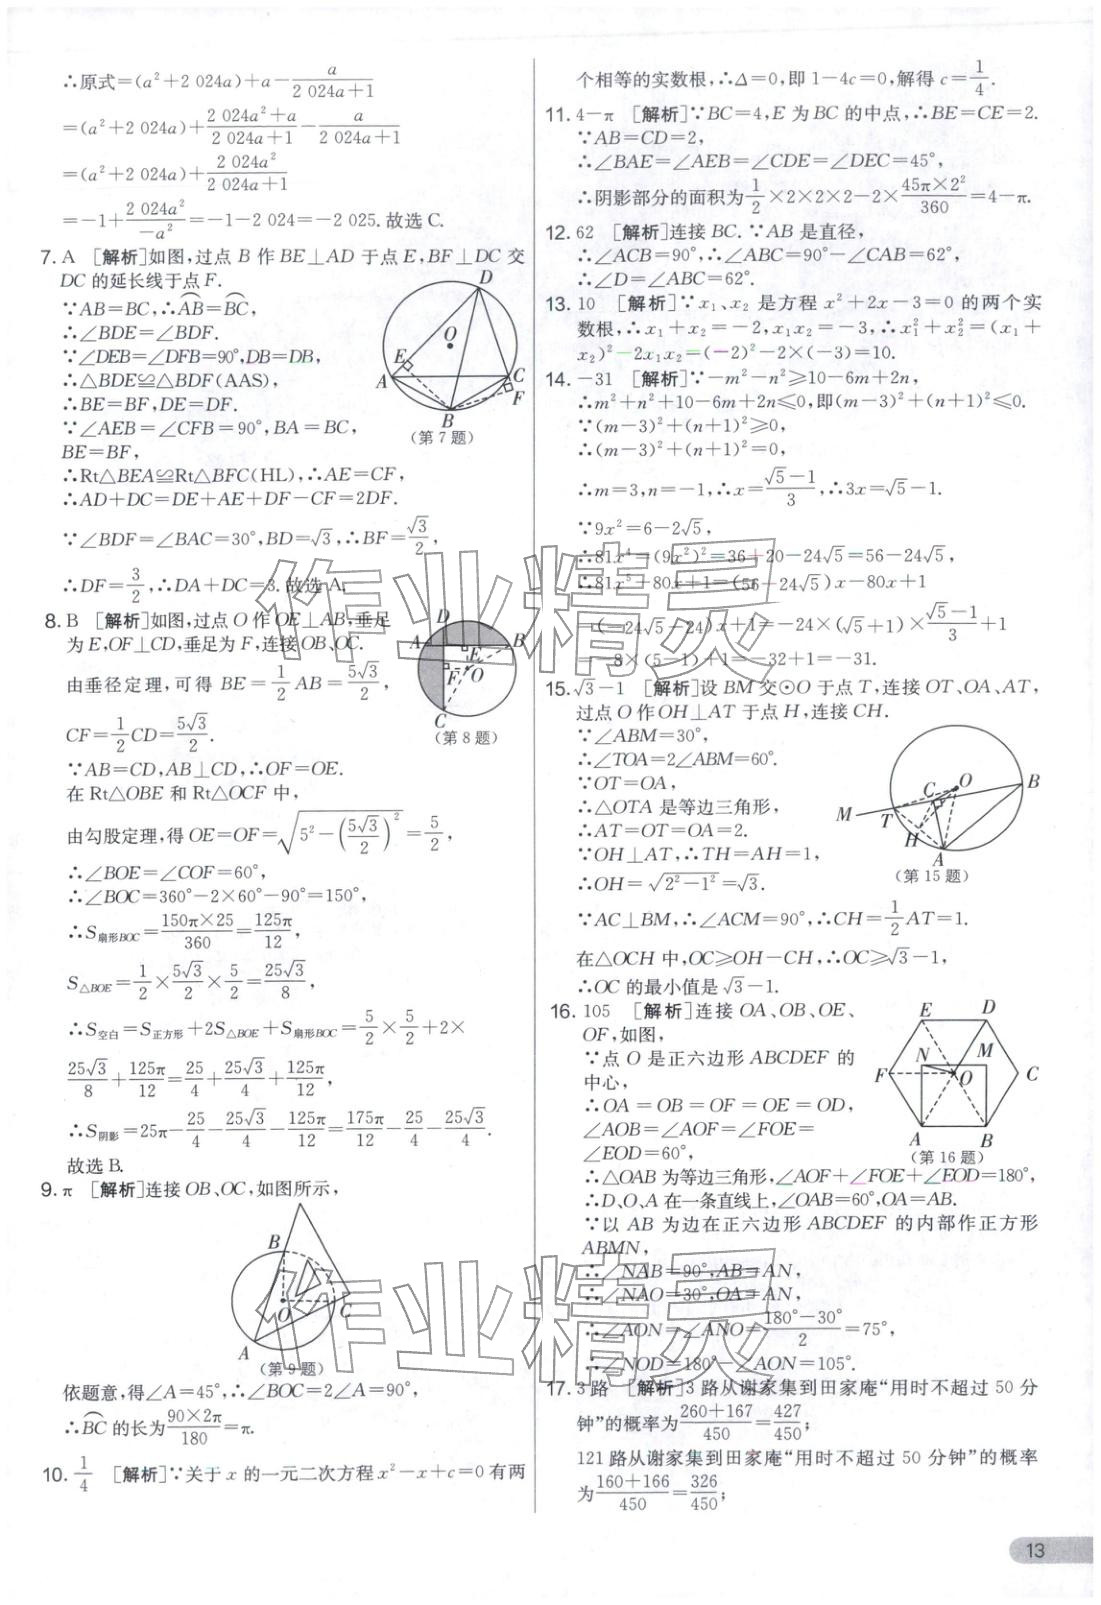 ∴原式=(a²+2 024a)+a-a/(2 024a+1)
=(a²+2 024a)+(2 024a²+a)/(2 024a+1)-a/(2 024a+1)
=(a²+2 024a)+2 024a²/(2 024a+1)
=-1+2 024a²/(-a²)=-1-2 024=-2 025.故选C.
7. A [解析]如图,过点B作BE⊥AD于点E,BF⊥DC交
DC的延长线于点F.
∵AB=BC,∴⌒AB=⌒BC,
∴∠BDE=∠BDF.
∵∠DEB=∠DFB=90°,DB=DB,
∴△BDE≌△BDF(AAS),
∴BE=BF,DE=DF.
∵∠AEB=∠CFB=90°,BA=BC,
BE=BF,
∴Rt△BEA≌Rt△BFC(HL),∴AE=CF,
∴AD+DC=DE+AE+DF-CF=2DF.
∵∠BDF=∠BAC=30°,BD=√3,∴BF=√3/2,
∴DF=3/2,∴DA+DC=3.故选A.
D
O
E
A
C
F
B
(第7题)
8. B [解析]如图,过点O作OE⊥AB,垂足
为E,OF⊥CD,垂足为F,连接OB、OC.
由垂径定理,可得BE=1/2AB=5√3/2,
CF=1/2CD=5√3/2.
∵AB=CD,AB⊥CD,∴OF=OE.
在Rt△OBE和Rt△OCF中,
由勾股定理,得OE=OF=√(5²-(5√3/2)²)=5/2,
∴∠BOE=∠COF=60°,
∴∠BOC=360°-2×60°-90°=150°,
∴S扇形BOC=150π×25/360=125π/12,
S△BOE=1/2×5√3/2×5/2=25√3/8,
∴S空白=S正方形+2S△BOE+S扇形BOC=5/2×5/2+2×
25√3/8+125π/12=25/4+25√3/4+125π/12,
∴S阴影=25π-25/4-25√3/4-125π/12=175π/12-25/4-25√3/4.
故选B.
D
A
B
E
F
O
C
(第8题)
9. π [解析]连接OB、OC,如图所示,
B
O
C
A
(第9题)
依题意,得∠A=45°,∴∠BOC=2∠A=90°,
∴⌒BC的长为90×2π/180=π.
10. 1/4 [解析]∵关于x的一元二次方程x²-x+c=0有两
个相等的实数根,∴Δ=0,即1-4c=0,解得c=1/4.
11. 4-π [解析]∵BC=4,E为BC的中点,∴BE=CE=2.
∵AB=CD=2,
∴∠BAE=∠AEB=∠CDE=∠DEC=45°,
∴阴影部分的面积为1/2×2×2×2-2×45π×2²/360=4-π.
12. 62 [解析]连接BC.∵AB是直径,
∴∠ACB=90°,∴∠ABC=90°-∠CAB=62°,
∴∠D=∠ABC=62°.
13. 10 [解析]∵x₁、x₂是方程x²+2x-3=0的两个实
数根,∴x₁+x₂=-2,x₁x₂=-3,∴x₁²+x₂²=(x₁+
x₂)²-2x₁x₂=(-2)²-2×(-3)=10.
14. -31 [解析]∵-m²-n²≥10-6m+2n,
∴m²+n²+10-6m+2n≤0,即(m-3)²+(n+1)²≤0.
∵(m-3)²+(n+1)²≥0,
∴(m-3)²+(n+1)²=0,
∴m=3,n=-1,∴x=(√5-1)/3,∴3x=√5-1.
∵9x²=6-2√5,
∴81x⁴=(9x²)²=36+20-24√5=56-24√5,
∴81x⁵+80x+1=(56-24√5)x-80x+1
=(-24√5-24)x+1=-24×(√5+1)×(√5-1)/3+1
=-8×(5-1)+1=-32+1=-31.
15. √3-1 [解析]设BM交⊙O于点T,连接OT、OA、AT,
过点O作OH⊥AT于点H,连接CH.
∵∠ABM=30°,
∴∠TOA=2∠ABM=60°.
∵OT=OA,
∴△OTA是等边三角形,
∴AT=OT=OA=2.
∵OH⊥AT,∴TH=AH=1,
∴OH=√(2²-1²)=√3.
∵AC⊥BM,∴∠ACM=90°,∴CH=1/2AT=1.
在△OCH中,OC≥OH-CH,∴OC≥√3-1,
∴OC的最小值是√3-1.
C
O
B
M
T
H
A
(第15题)
16. 105 [解析]连接OA、OB、OE、
OF,如图,
∵点O是正六边形ABCDEF的
中心,
∴OA=OB=OF=OE=OD,
∠AOB=∠AOF=∠FOE=
∠EOD=60°,
∴△OAB为等边三角形,∠AOF+∠FOE+∠EOD=180°,
∴D、O、A在一条直线上,∠OAB=60°,OA=AB.
∵以AB为边在正六边形ABCDEF的内部作正方形
ABMN,
∴∠NAB=90°,AB=AN,
∴∠NAO=30°,OA=AN,
∴∠AON=∠ANO=(180°-30°)/2=75°,
∴∠NOD=180°-∠AON=105°.
E
D
N
M
F
O
C
A
B
(第16题)
17. 3路 [解析]3路从谢家集到田家庵“用时不超过50分
钟”的概率为(260+167)/450=427/450;
121路从谢家集到田家庵“用时不超过50分钟”的概率
为(160+166)/450=326/450;
作业精灵
作业精灵
13